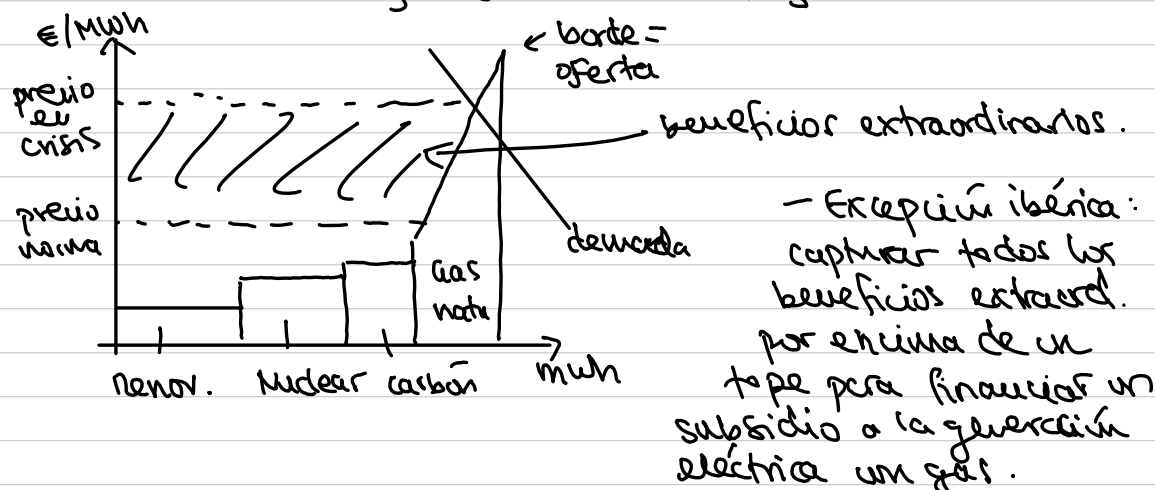 €/MWh
← borde =
oferta
precio
en
crisis
beneficios extraordinarios.
precio
norma
demanda
Gas
natu
renov. Nuclear carbón
mwh
- Excepción ibérica:
capturar todos los
beneficios extraord.
por encima de un
tope para financiar un
subsidio a la generación
eléctrica con gas.